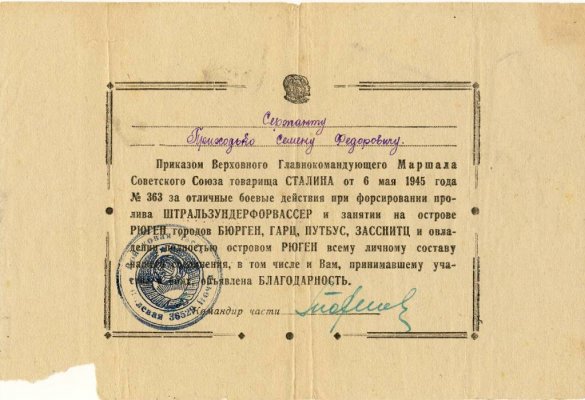 Сержанту
Приходько Семену Федоровичу.
Приказом Верховного Главнокомандующего Маршала
Советского Союза товарища СТАЛИНА от 6 мая 1945 года
№ 363 за отличные боевые действия при форсировании про-
лива ШТРАЛЬЗУНДЕРФОРВАССЕР и занятии на острове
РЮГЕН городов БЮРГЕН, ГАРЦ, ПУТБУС, ЗАССНИТЦ и овла-
дении полностью островом РЮГЕН всему личному составу
нашего соединения, в том числе и Вам, принимавшему уча-
объявлена БЛАГОДАРНОСТЬ.
Командир части
Полевая